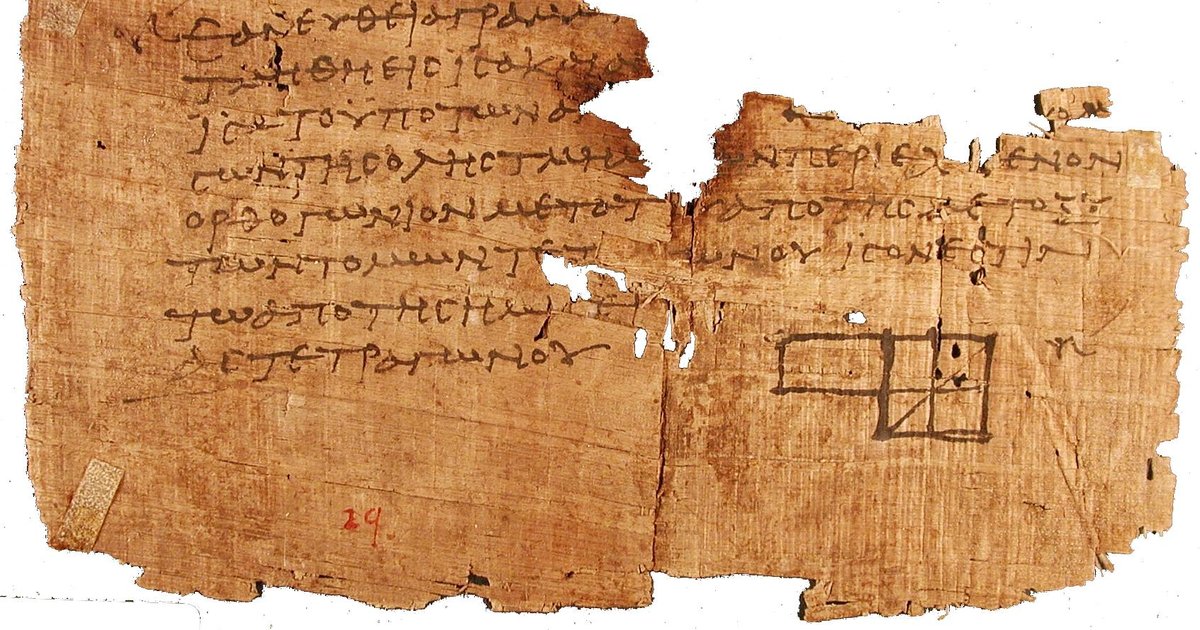 ΕΑΝΕΥΘΕΙΑΓΡΑΜΜ
ΤΜΗΘΗΕΙCΙCΑΚΑΙΑ
ΙCΑΤΟΥΠΟΤΩΝΑ
CΩΝΤΗCΟΛΗCΤΜΗΜ ΩΝΠΕΡΙΕΧ ΕΝΟΝ
ΟΡΘΟΓΩΝΙΟΝΜΕΤΟΤ ΑΠΟΤΗCΜΕΤΟΞΥ
ΤΩΝΤΟΜΩΝΤΕΤ ΩΝΟΥΙCΟΝΕCΤΙΝ
ΤΩΑΠΟΤΗCΗΜΙ ΕΙ
ΑCΤΕΤΡΑΓΩΝΟΥ
29.